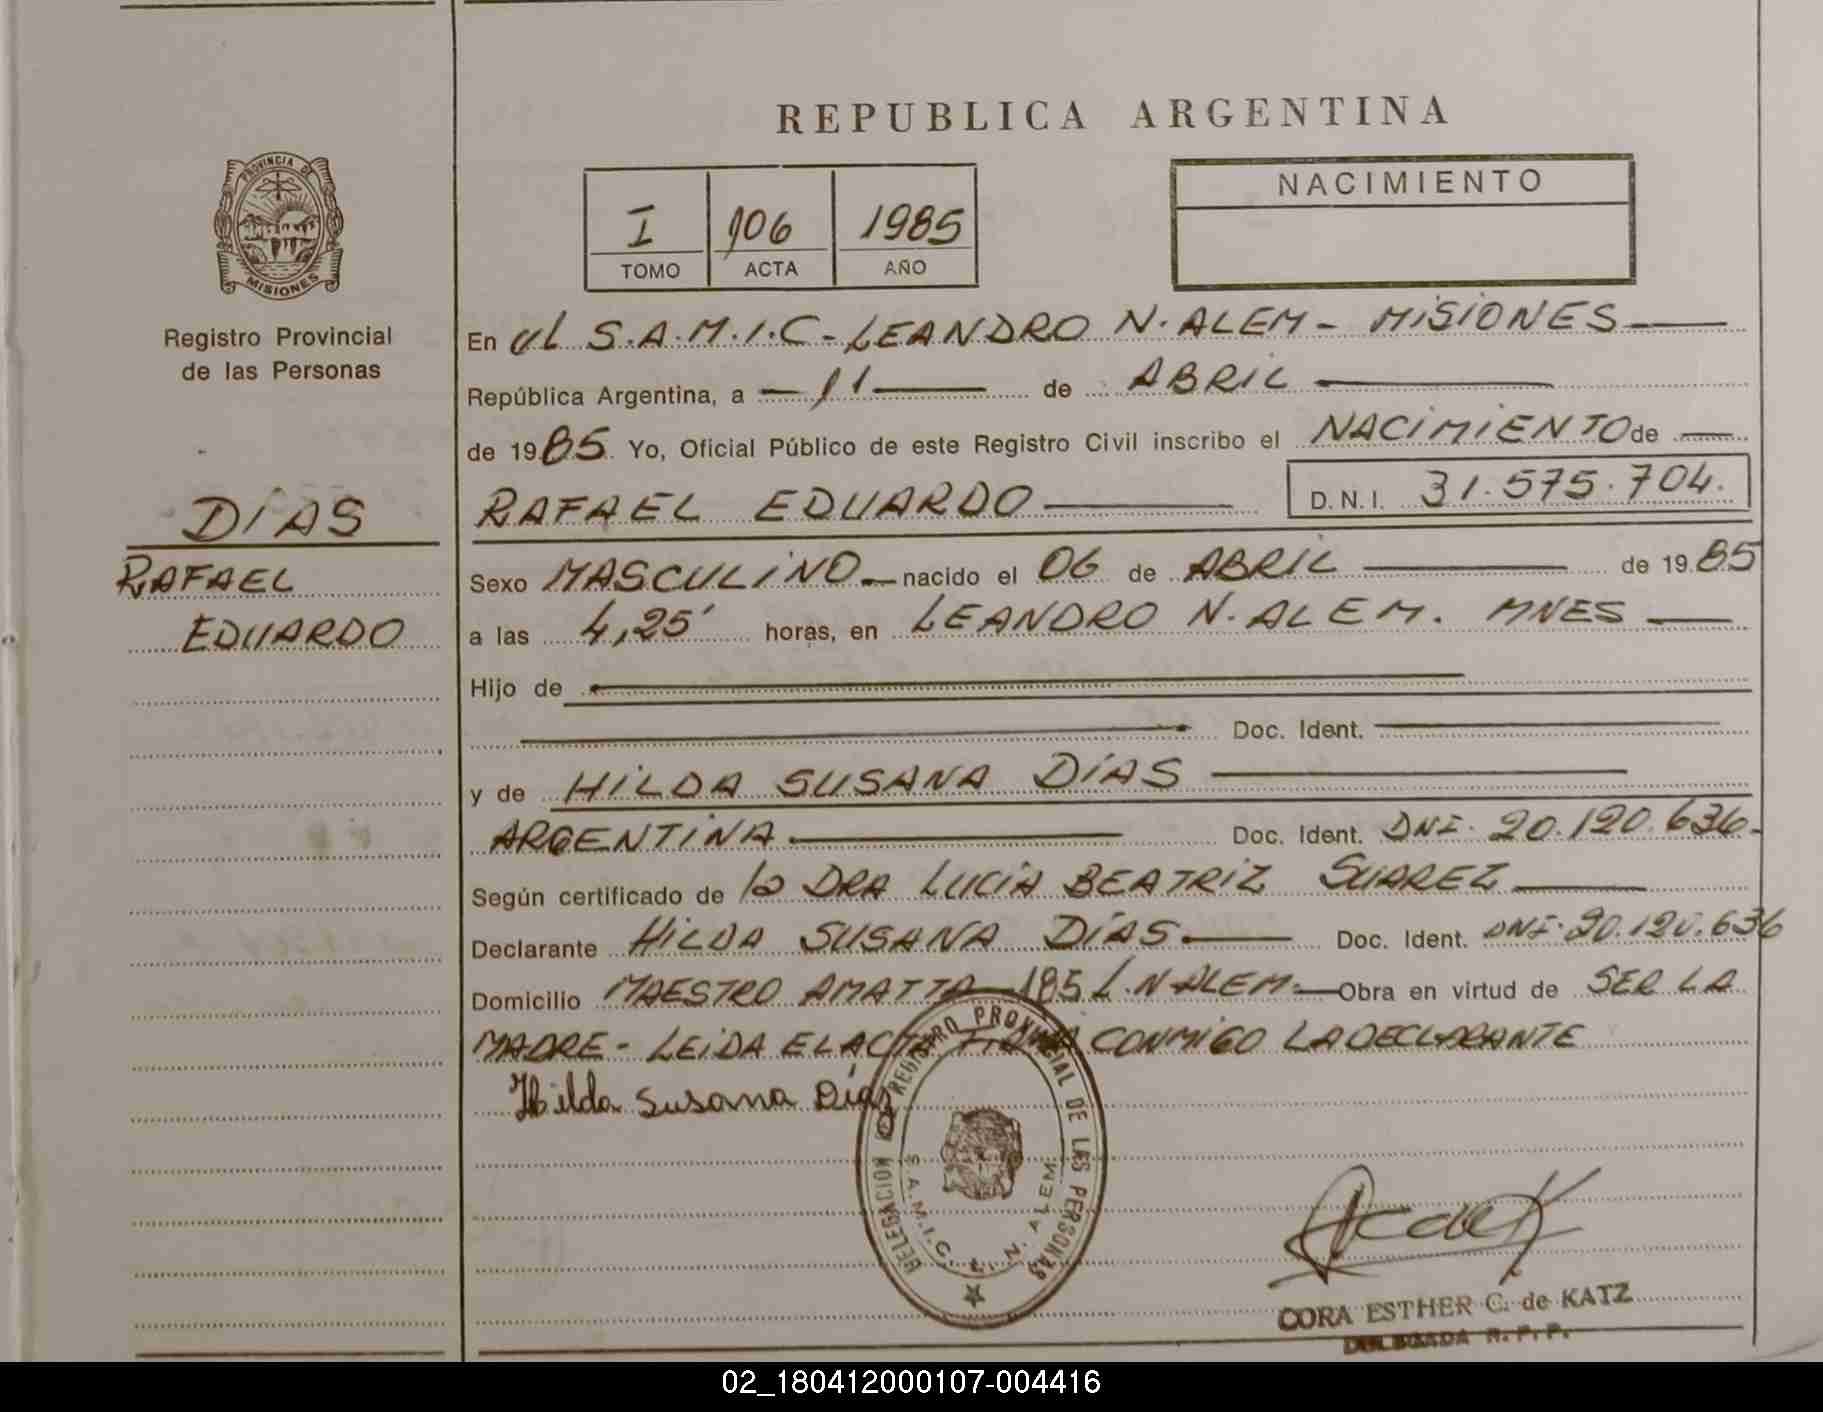 REPUBLICA ARGENTINA
PROVINCIA DE
MISIONES
Registro Provincial
de las Personas
DíAS
RAFAEL
EDUARDO
I 106 1985
TOMO ACTA AÑO
NACIMIENTO
En el S.A.M.I.C - LEANDRO N. ALEM - MISIONES
República Argentina, a - 11 de ABRIL
de 1985 Yo, Oficial Público de este Registro Civil inscribo el NACIMIENTO de
RAFAEL EDUARDO D.N.I. 31.575.704.
Sexo MASCULINO nacido el 06 de ABRIL de 1985
a las 4,25' horas, en LEANDRO N. ALEM. MNES
Hijo de
Doc. Ident.
y de HILDA SUSANA DíAS
ARGENTINA Doc. Ident. DNI. 20.120.636.
Según certificado de la DRA LUCIA BEATRIZ SUAREZ
Declarante HILDA SUSANA DíAS. Doc. Ident. DNI. 20.120.636
Domicilio MAESTRO AMATTA 185 L.N.ALEM. Obra en virtud de SER LA
MADRE - LEIDA EL ACTA FIRMA CONMIGO LA DECLARANTE
Hilda Susana Días
DELEGACION REGISTRO PROVINCIAL DE LAS PERSONAS
S.A.M.I.C. L. N. ALEM
CORA ESTHER C. de KATZ
DELEGADA R. P. P.
02_180412000107-004416